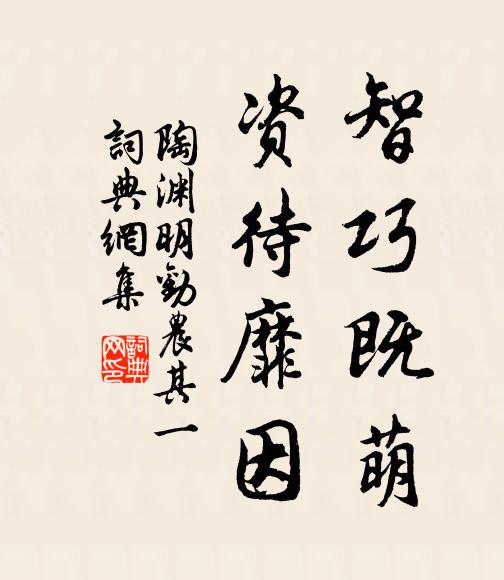 智巧既萌
资待靡因
陶渊明勸農其一
詞典網集
詞典
网印